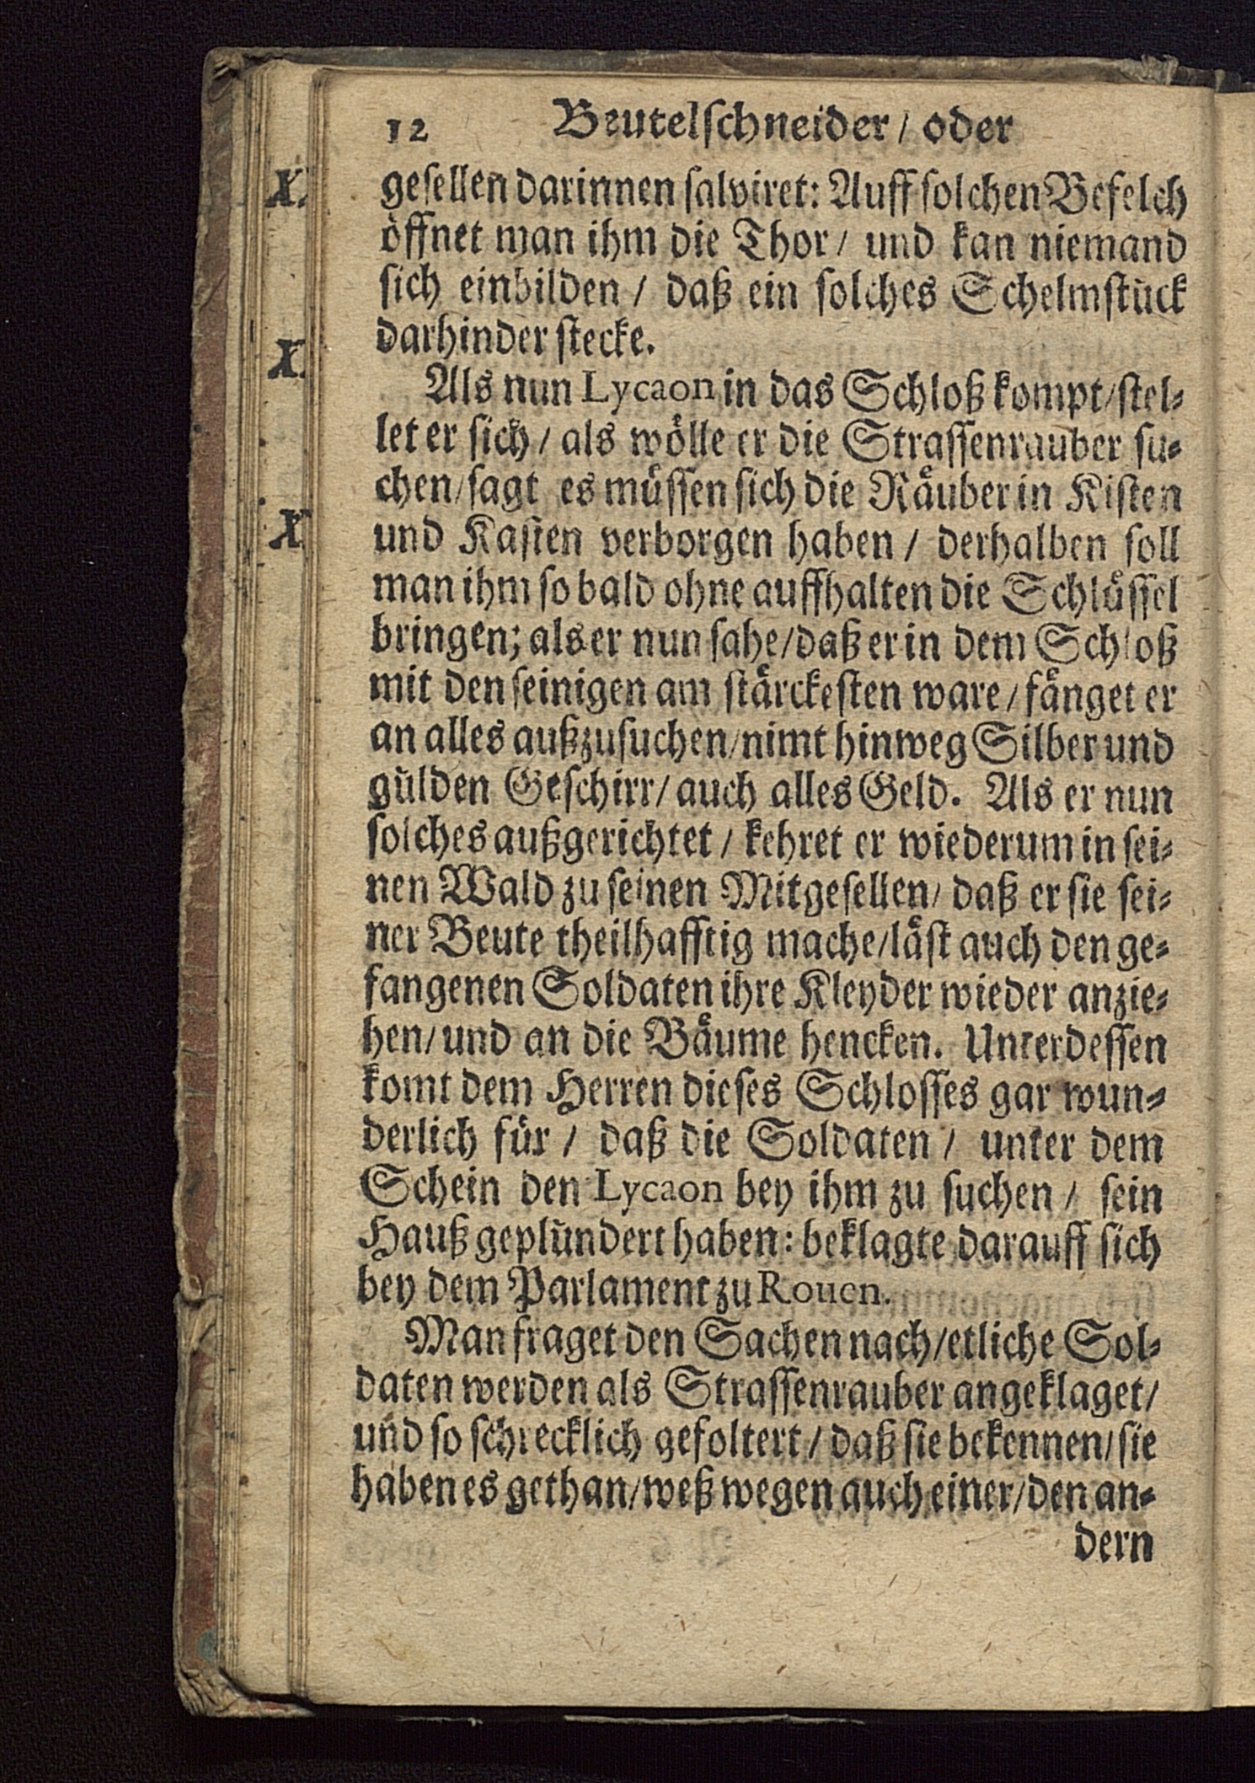 12 Beutelschneider / oder
X. gesellen darinnen salviret: Auff solchen Befelch
öffnet man ihm die Thor / und kan niemand
sich einbilden / daß ein solches Schelmstück
X. darhinder stecke.
Als nun Lycaon in das Schloß kompt / stel-
let er sich / als wölle er die Strassenrauber su-
chen / sagt es müssen sich die Räuber in Kisten
X und Kasten verborgen haben / derhalben soll
man ihm so bald ohne auffhalten die Schlüssel
bringen; als er nun sahe / daß er in dem Schloß
mit den seinigen am stärckesten ware / fänget er
an alles außzusuchen / nimt hinweg Silber und
gülden Geschirr / auch alles Geld. Als er nun
solches außgerichtet / kehret er wiederum in sei-
nen Wald zu seinen Mitgesellen / daß er sie sei-
ner Beute theilhafftig mache / läst auch den ge-
fangenen Soldaten ihre Kleyder wieder anzie-
hen / und an die Bäume hencken. Unterdessen
komt dem Herren dieses Schlosses gar wun-
derlich für / daß die Soldaten / unter dem
Schein den Lycaon bey ihm zu suchen / sein
Hauß geplündert haben: beklagte darauff sich
bey dem Parlament zu Rouen.
Man fraget den Sachen nach / etliche Sol-
daten werden als Strassenrauber angeklaget /
und so schrecklich gefoltert / daß sie bekennen / sie
haben es gethan / weßwegen auch einer / den an-
dern